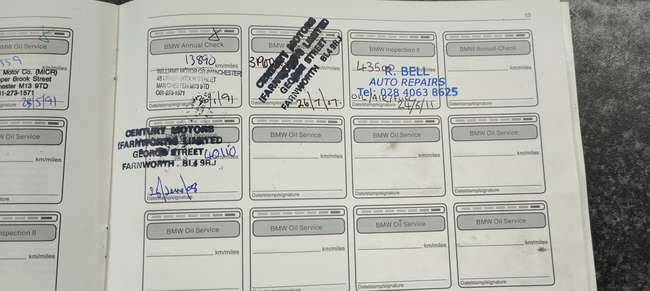 13
BMW Oil Service
Motor Co. (MICR)
pper Brook Street
chester M13 9TD
61-273-1571
BMW Annual Check
13890
km/miles
WILLIAMS MOTOR CO (MANCHESTER)
MANCHESTER M13 9TD
061-273-1571
CENTURY MOTORS
(FARNWORTH) LIMITED
GEORGE STREET
FARNWORTH. BL4 9RJ
26/7/07.
BMW Inspection II
R. BELL
AUTO REPAIRS
Tel: 028 4063 8625
OIL/AIR/
Date/stamp/signature
BMW Annual Check
km/miles
Date/stamp/signature
BMW Oil Service
km/miles
CENTURY MOTORS
(FARNWORTH) LIMITED
GEORGE STREET
FARNWORTH. BL4 9RJ
Date/stamp/signature
BMW Oil Service
km/miles
Date/stamp/signature
BMW Oil Service
km/miles
Date/stamp/signature
BMW Oil Service
km/miles
Date/stamp/signature
BMW Oil Service
km/miles
nspection II
km/miles
BMW Oil Service
km/miles
Date/stamp/signature
BMW Oil Service
km/miles
Date/stamp/signature
BMW Oil Service
km/miles
Date/stamp/signature
BMW Oil Service
km/miles
Date/stamp/signature